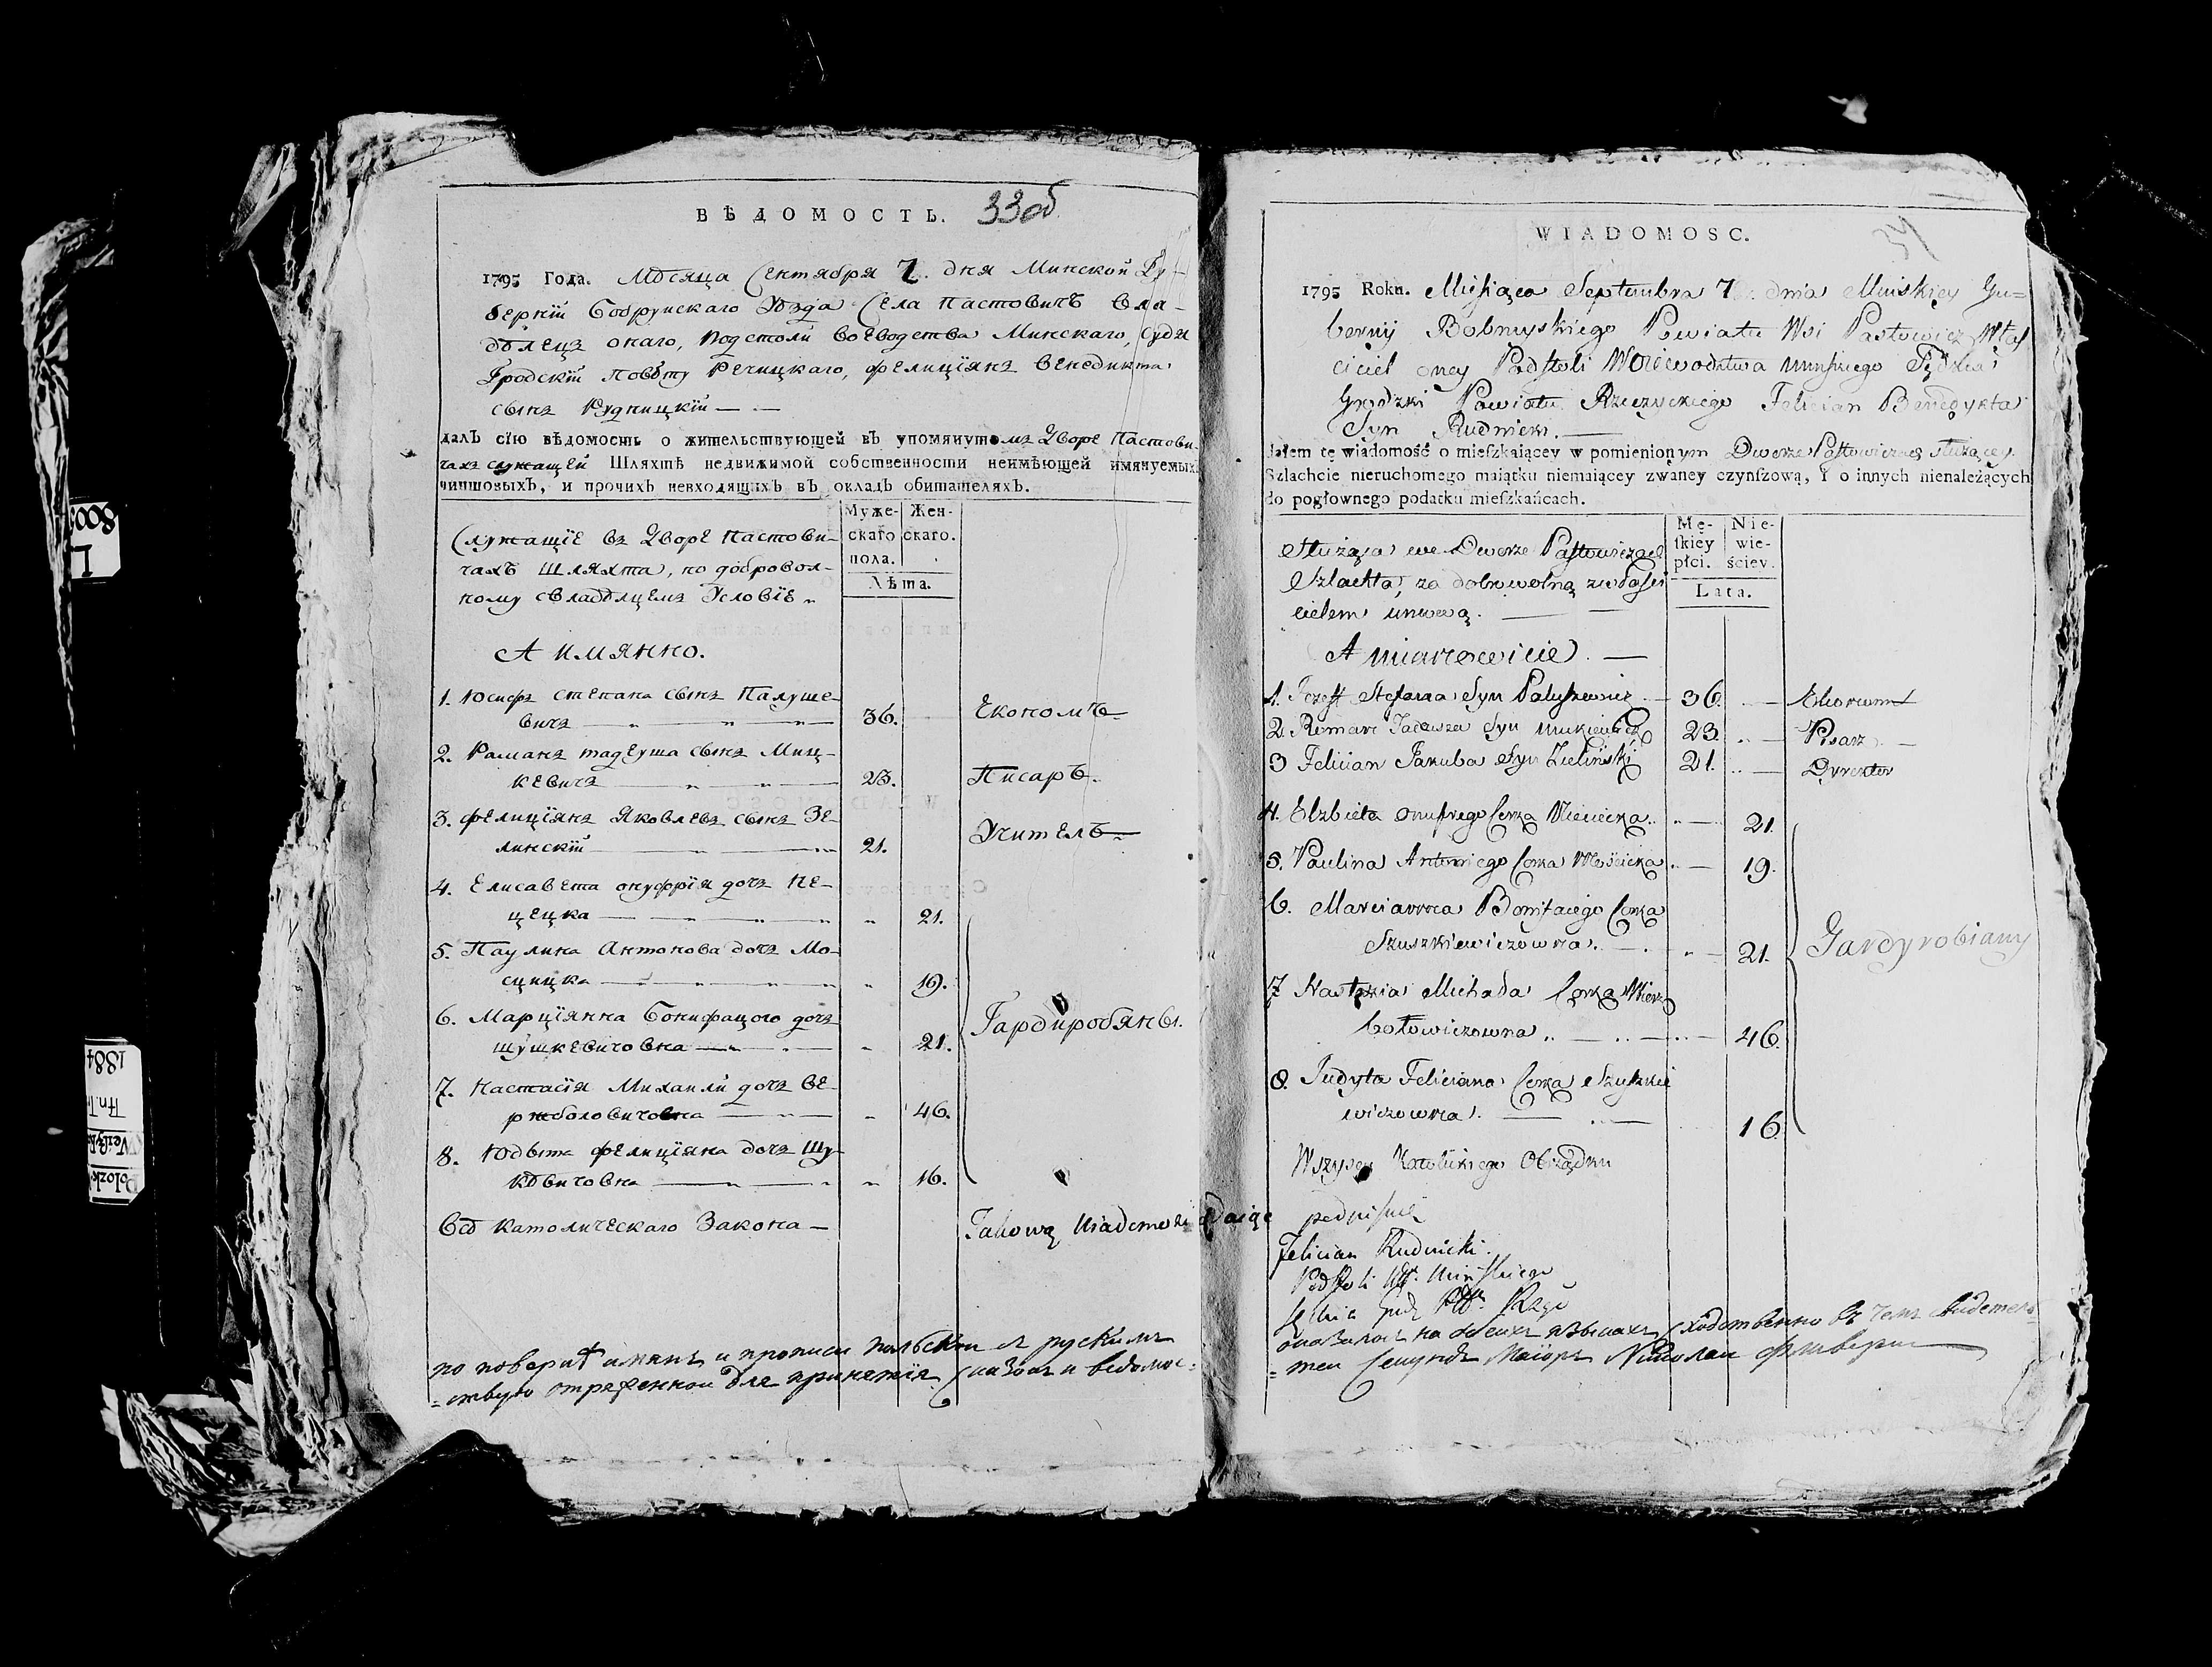 ВѢДОМОСТЬ. 33об
1795 Года. Мѣсяца Сентября 7. дня Минской Гу-
берніи Бобруйскаго Уѣзда Села Пастовичъ Вла-
дѣлецъ онаго, Подстоли Воеводства Минскаго, Судя
Гродскій Повѣту Речицкаго, Фелиціянъ Бенедикта
сынъ Рудницкій — —
далъ сію вѣдомость о жительствующей въ упомянутомъ Дворе Пастови-
чахъ служащей Шляхтѣ недвижимой собственности неимѣющей имянуемыхъ
чиншовыхъ, и прочихъ невходящихъ въ окладъ обитателяхъ.
Муже- Жен-
скаго скаго.
пола.
Лѣта.
Служащіе въ Дворе Пастови-
чахъ Шляхта, по доброволь-
ному с Владѣлцемъ Условіе „
А Имянно.
1. Юсифъ Степана сынъ Палуше-
вичъ — „ — „ — 36. — Економъ —
2. Раманъ Тадеуша сынъ Миц-
кевичъ — „ — „ — 23. Писаръ.
3. Фелиціянъ Яковлевъ сынъ Зе-
линскій — „ — 21. Учителъ —
4. Елисавета Онуфрія дочъ Не-
цецка — „ — „ — „ „ 21.
5. Паулина Антонова дочъ Мо-
сцицка — „ — „ — „ „ 19.
6. Марціянна Бонифацого дочъ
Шушкевичовна — „ — „ 21. Гардиробяны.
7. Настасія Михаили дочъ Ве-
ржболовичовна — „ — „ 46.
8. Юдыта Фелиціяна дочъ Шу-
кѣвичовна — „ — „ „ 16.
Всѣ католическаго Закона —
по поверке имянъ и прописи польской с рускимъ
=ствую отреженной для принетія сказокъ и ведомос=
WIADOMOSC. 34
1795 Roku. Miesiąca Septembra 7. dnia Minskiey Gu=
bernij Bobruyskiego Powiatu Wsi Pastowicz Włas
ciciel oney Podstoli Woiewodztwa Minskiego Sędzia
Grodzki Powiatu Rzeczyckiego Felician Benedykta
Syn Rudnicki. —
dałem tę wiadomość o mieſzkaiącey w pomienionym Dworze Pastowiczach służącey
Szlachcie nieruchomego maiątku niemaiącey zwaney czynſzową, I o innych nienależących
do pogłownego podatku mieſzkańcach.
Mę- Nie-
ſkiey wie-
płci. ściey.
Lata.
Służąca we Dworze Pastowiczach
Szlachta, za dobrowolną z właści
cielem umową. —
A mianowicie. —
1. Jozeff Stefana Syn Paluszewicz — 36. — Ekonom
2. Roman Tadeusza Syn Mickiewicz 23. „ — Pisarz —
3 Felician Jakuba Syn Zieliński 21. „ — Dyrektor
4. Elzbieta Onufrego Corka Nieciecka „ — 21.
5. Paulina Antoniego Corka Mościcka „ — 19.
6. Marcianna Bonifacego Corka
Szuszkiewiczowna. — „ — 21. Gardyrobiany
7 Nastazia Michała Corka Wierz
bołowiczowna „ — „ — 46.
8. Judyta Feliciana Corka Szuszkie
wiczowna. — „ — 16
Wszyscy Katolickiego Obrządku
Takową Wiadomość Daiąc podpisuię
Felician Rudnicki.
Podstoli Minskiego
оказалось на обеихъ языкахъ сходственно въ чемъ свидетель
=теи Секундъ Маіоръ Николаи